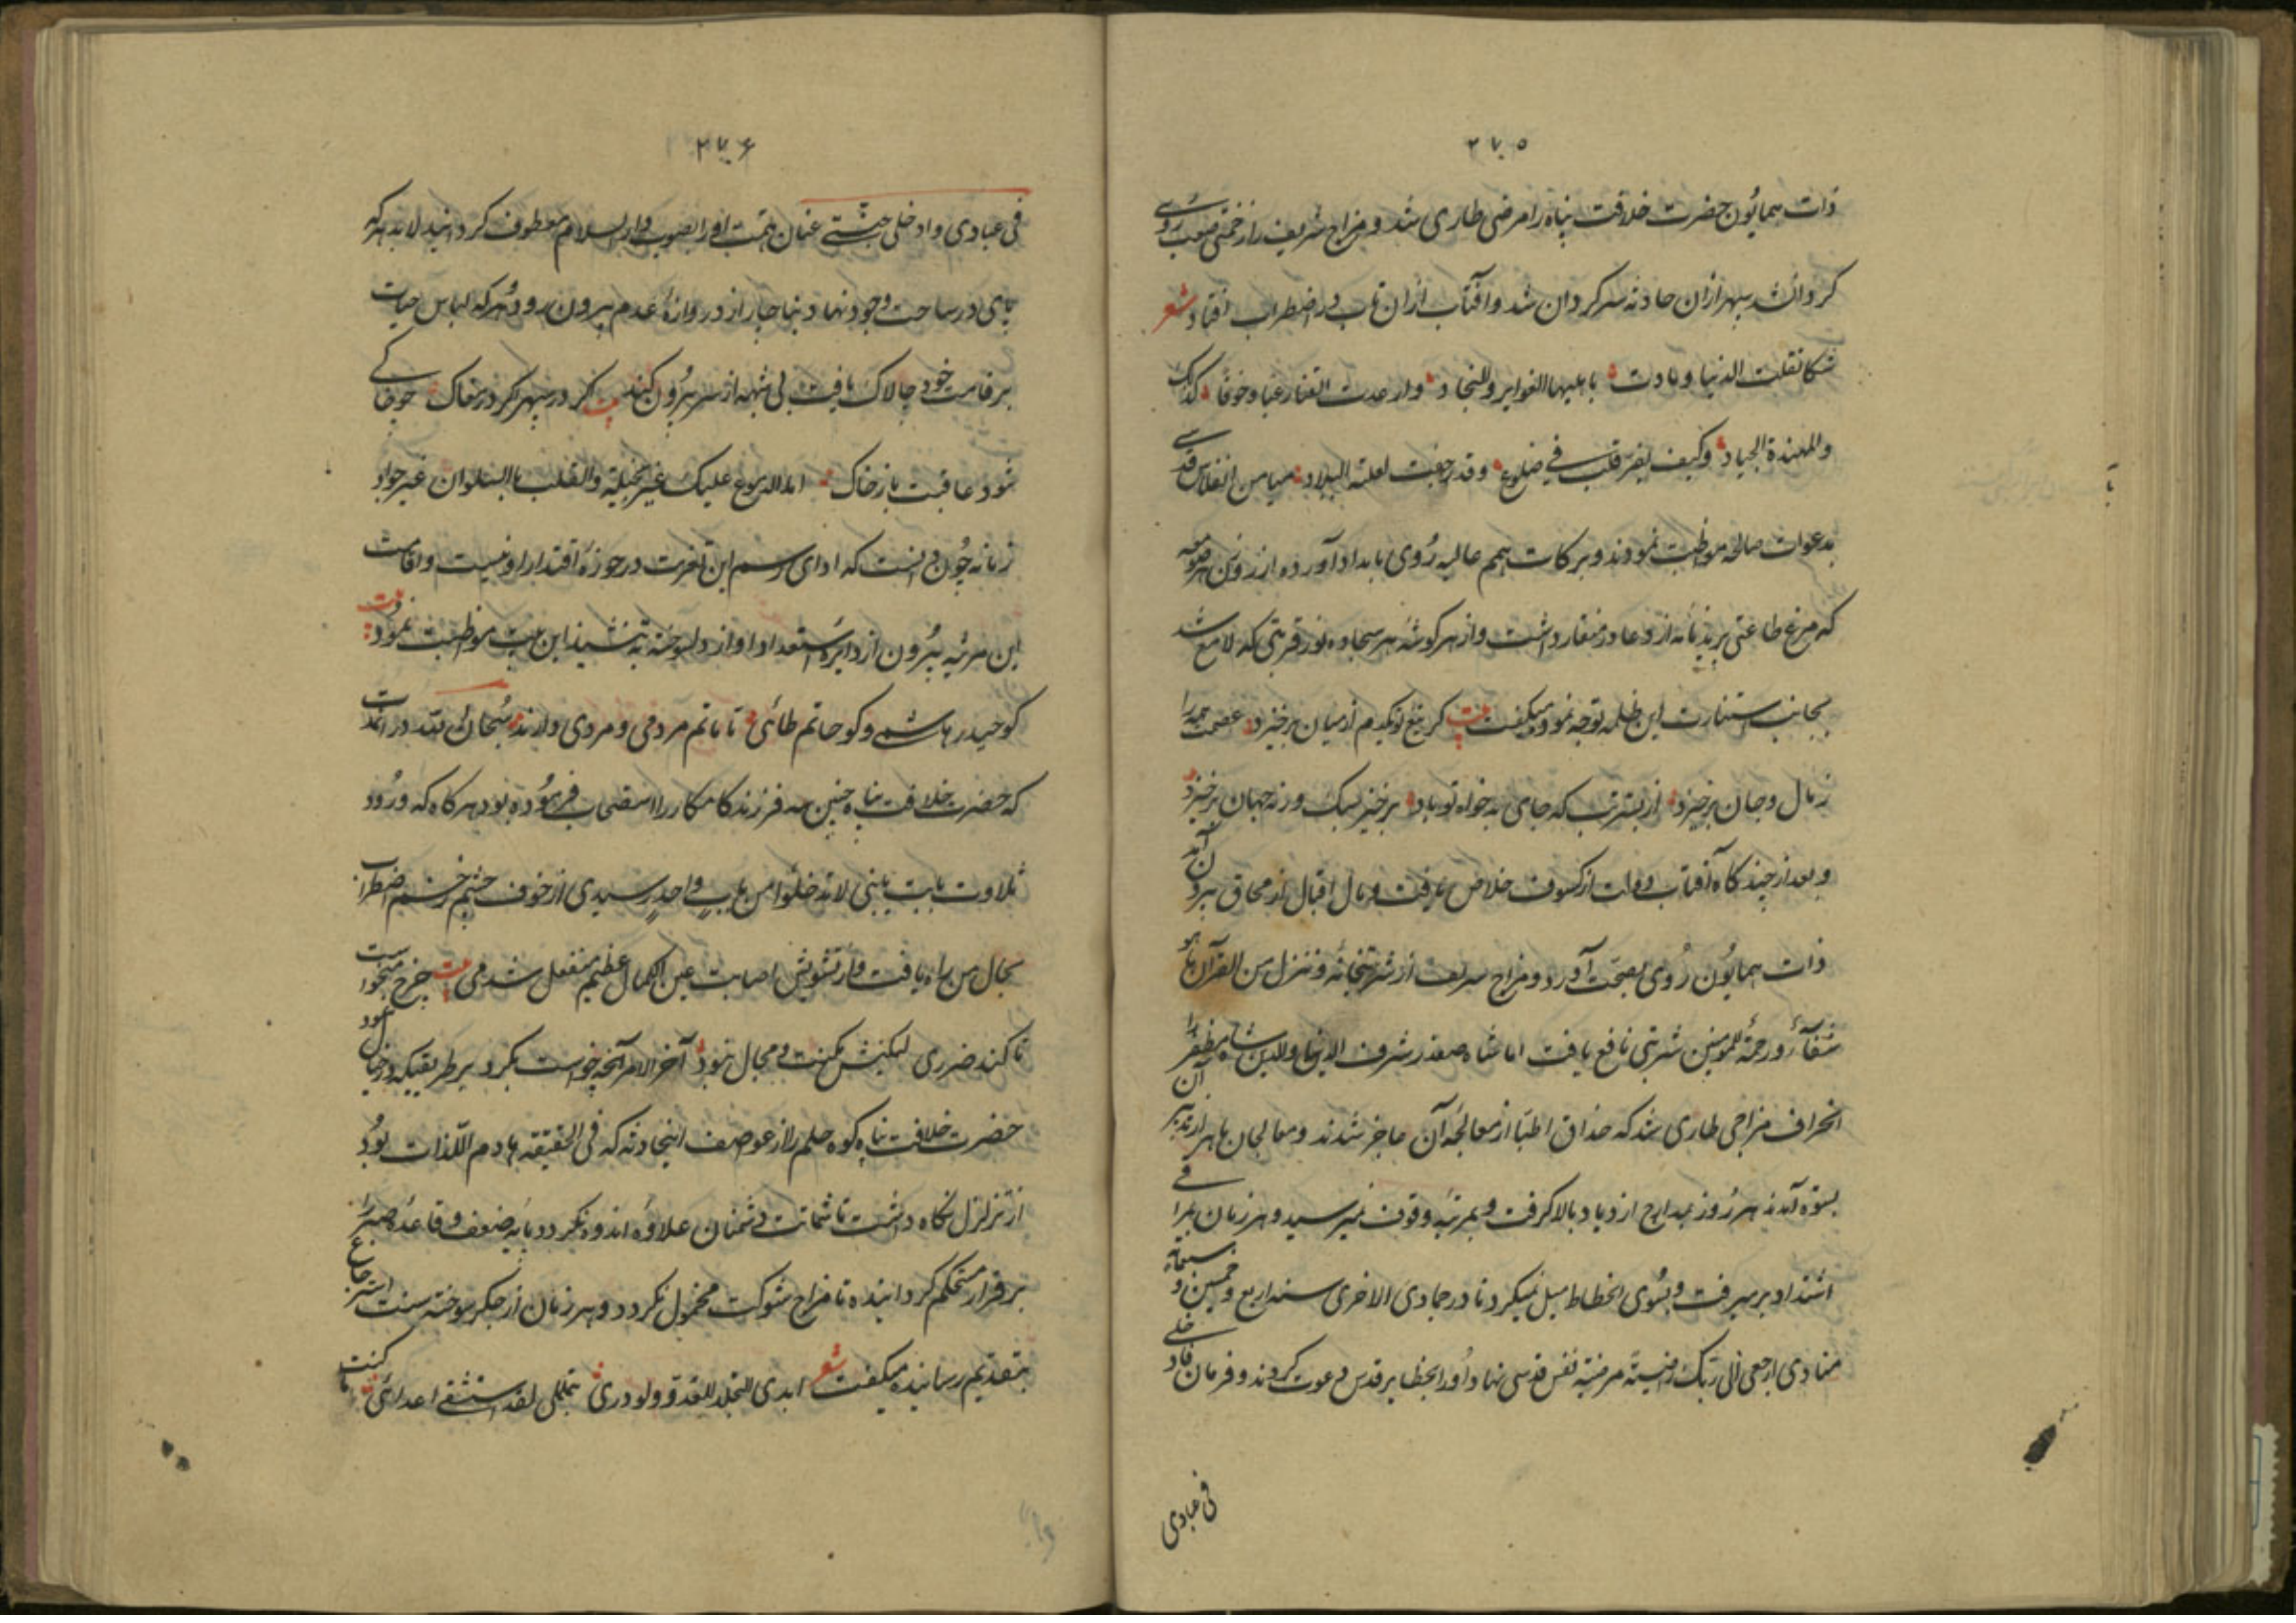 ۲۷۵
ذات همایون حضرت خلافت پناه را مرضی طاری شد و مزاج شریف را زحمتی صعب روی
کردانشد سپهر ازان حادثه سرکردان شد و آفتاب ازان تاب در اضطراب افتاد شعر
شکا تقلت الدنیا و مادت باهلیها الغوایر والنجاد وارعدت القنا رعبا و خوفا کذلک
والمهندة الجیاد وکیف یقر قلب فی ضلوع وقد رجفت لعلته البلاد میامن انفاس قدسی
بدعوات صالحه مواظبت نمودند و برکات همم عالیه روی بامداد آورده از روزن هر صومعه
که مرغ طاعتی پرید نامه از دعا در منقار داشت و از هر کوشه هر سجاده نور قربتی که لامع شد
بجانب استنارت این ظلمه توجه نمود میکفت بیت کر تیغ تو یکدم از میان برخیزد عصمت همه را
ز مال و جان برخیزد از بستر تب که جای بدخواه تو باد برخیز سبک ورنه جهان برخیزد
و بعد از چند کاه آفتاب دولت از کسوف خلاص یافت و مال اقبال از محاق بیرون آمد
ذات همایون روی بصحت آورد و مزاج شریف از شربتخانه و ننزل من القرآن ما هو
شفآء و رحمة للمومنین شربتی نافع یافت اما شاه صفدر شرف الدنیا والدین شاه مظفر را
انحراف مزاجی طاری شد که حذاق اطبا از معالجه آن عاجز شدند و معالجان ماهر از تدبیر آن
بستوه آمدند هر روز بمدارج ازدیاد بالا کرفت و بمرتبه وقوف نمیرسید و هر زمان بمراقی
اشتداد بر میرفت و بسوی انحطاط میل نمیکرد تا در جمادی الاخری سنه اربع و خمسین و سبعمائه
منادی ارجعی الی ربک راضیة مرضیة نفس قدسی نهاد او را بحظایر قدس دعوت کردند و فرمان فادخلی
فی عبادی
۲۷۶
فی عبادی وادخلی جنتی عنان همت او را بصوب دار السلام معطوف کردانید لابد هر که
پای در ساحت وجود نهاد بناچار از دروازه عدم بیرون رود هر که لباس حیات
بر قامت خود چالاک یافت بی شبهه از سر بیرون کند بیت کر در سپهر کر در مغاک جوفاکی
شود عاقبت باز خاک اما الدموع علیک غیر بخیلة والقلب بالسلوان غیر جواد
زمانه چون دانست که ادای رسم این تعزیت در حوزه اقتدار او نیست و اقامت
این مرثیه بیرون از دایره استعداد او از دلسوخته بنشید این بیت مواظبت نمود بیت
کو حیدر هاشمی و کو حاتم طائی تا ماتم مردمی و مردی دارند سبحان الله در اندک
که حضرت خلافت پناه چنین سه فرزند کامکار را استصحاب فرموده بود هر کاه که ورود
تلاوت بایت یا بنی لا تدخلوا من باب واحد رسیدی از خوف چشم زخم اضطراب
بحال من راه یافت و از تشویش اصابت عین الکمال عظیم منفعل شدمی بیت چرخ میخواست
تا کند ضرری لیکنش مکنت و مجال نبود آخر الامر آنچه خواست بکرد بر طریقیکه در خیال نبود
حضرت خلافت پناه کوه حلم را از عواصف اینحادثه که فی الحقیقه هادم اللذات بود
از تزلزل نکاه داشت تا شماتت دشمنان علاوه اندوه نکردد و پایه ضعف و قاعده صبر را
برقرار مستحکم کردانیده تا مزاج شوکت مخذول نکردد و هر زمان از جکر سوخته سنت استرجاع
بتقدیم رسانیده میکفت شعر ابدی التجلد للعدو ولو دری بتململی لقد اشتفی اعدائی ما کنت